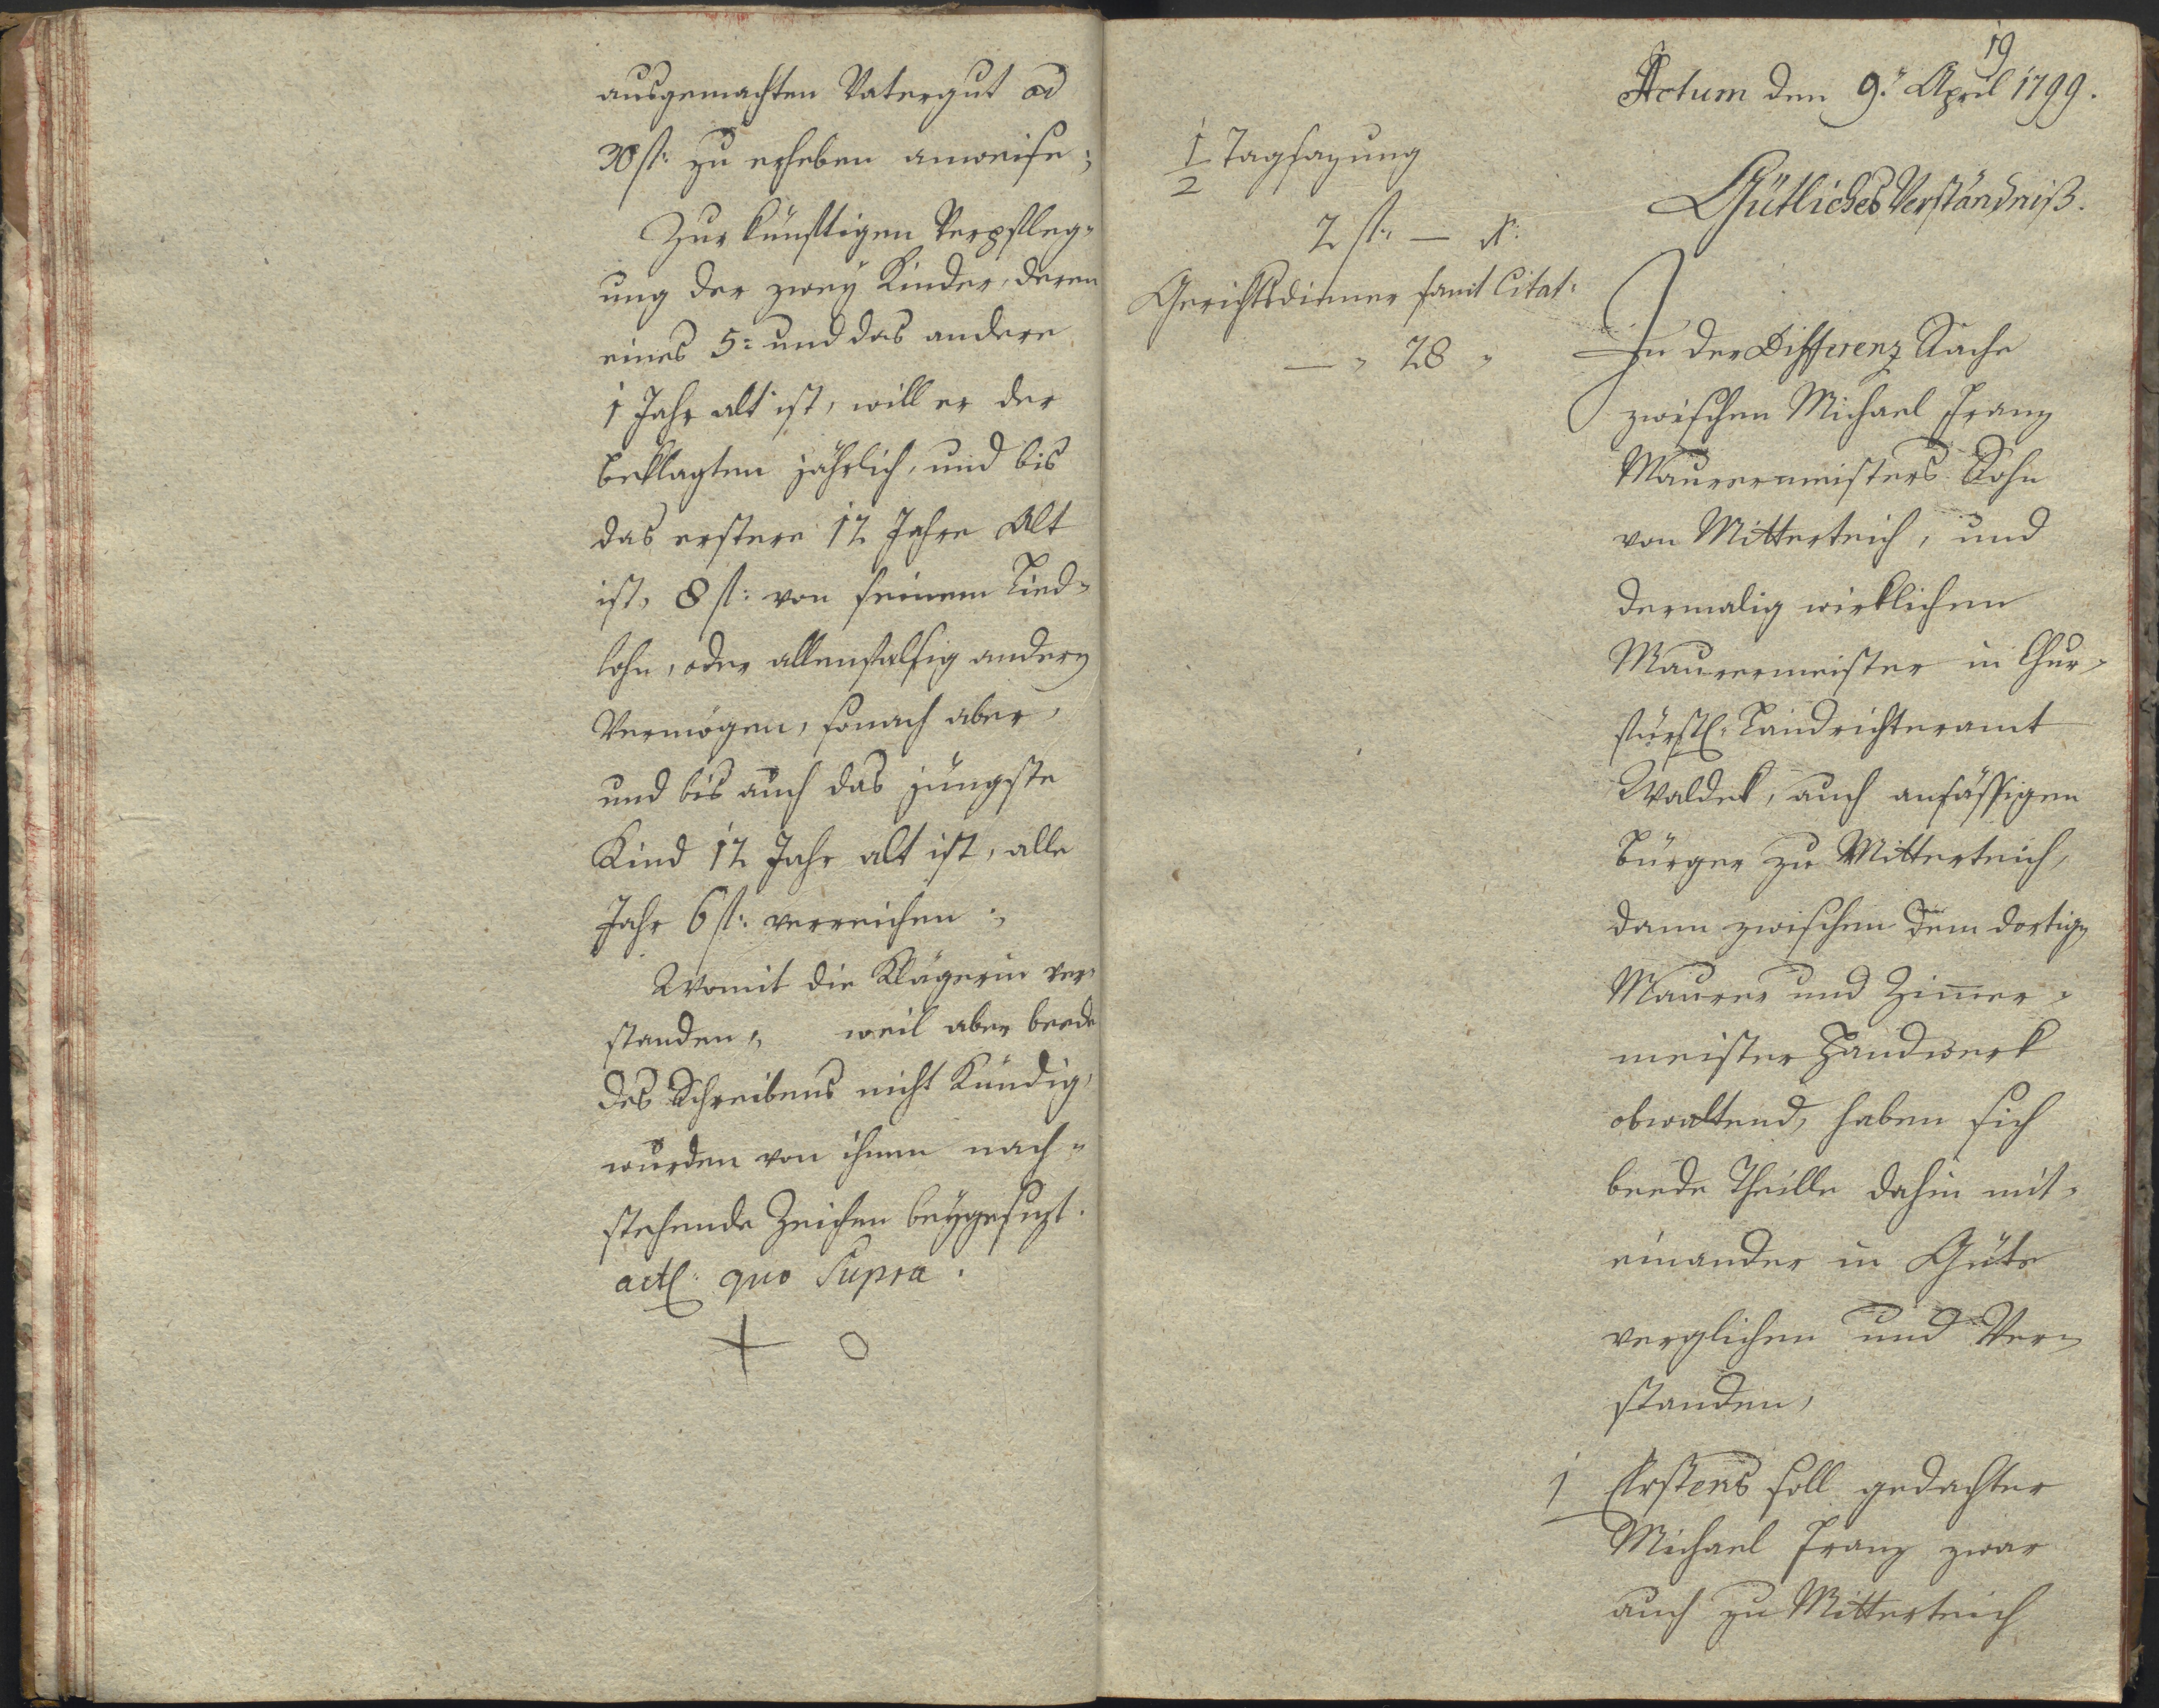 ausgemachten Vatergut ad
30 fl: zu erheben anweise;
Zur künftigen Verpfleg-
ung der zwey Kinder, deren
eines 5: und das andere
1 Jahr alt ist, will er der
Beklagten jährlich, und bis
das erstere 12 Jahre alt
ist, 8 fl: von seinem Lied-
lohn, oder allenfalsig andern
Vermögen, sonach aber,
und bis auch das jüngste
Kind 12 Jahr alt ist, alle
Jahr 6 fl: verreichen;
Womit die Klägerin ver-
standen, weil aber beede
des Schreibens nicht kündig,
wurden von ihnen nach-
stehende Zeichen beygesezt.
actl: quo Supra.
+ O
19
Actum den 9: April 1799.
Gütliches Verständniß.
1/2 Tagsazung
2 fl: — x:
Gerichtsdienner samt Citat:
— " 28 "
In der Differenz Sache
zwischen Michael Franz
Maurermeisters Sohn
von Mitterteich, und
dermalig wirklichen
Maurermeister in Chur-
fürstl: Landrichteramt
Waldek, auch ansässigen
Bürger zu Mitterteich,
dann zwischen dem dortign
Maurer und Zimer-
meister Handwerk
obwaltend, haben sich
beede Theille dahin mit-
einander in Güte
verglichen und Ver-
standen,
1 Erstens soll gedachter
Michael Franz zwar
auch zu Mitterteich